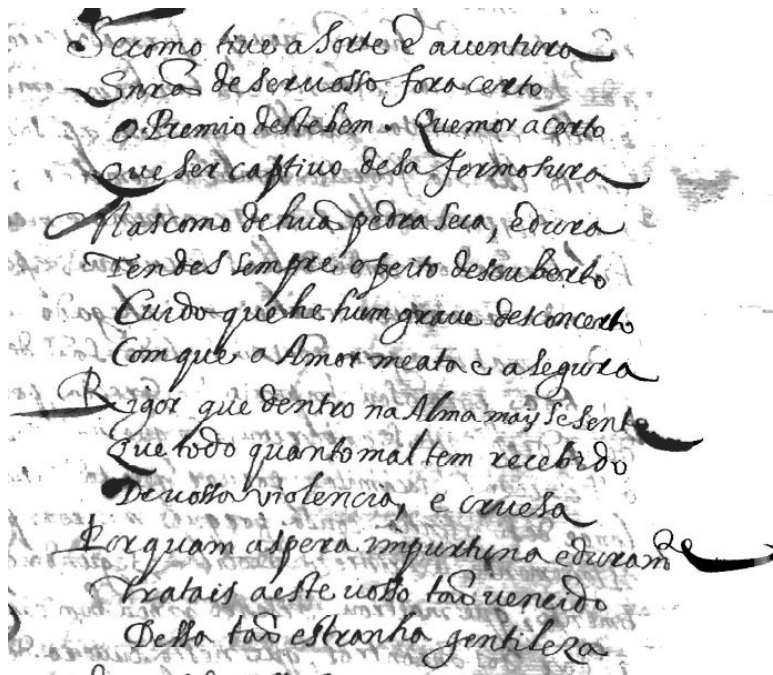 Se como tive a Sorte e a ventura
Snrã de ser vosso fora certo
o Premio deste bem. Quem or acerto
Que ser captivo desa formosura
Mas como de huã pedra seca, e dura
Tendes sempre o peito descuberto
Cuido que he hum grave desconcerto
Com que o Amor me ata e asegura
Rigor que dentro na Alma mais se sente
Que todo quanto mal tem recebido
De vossa violencia, e cruesa
Porquam aspera importuna e duramte
Tratais a este vosso tão vencido
Dessa tão estranha gentileza